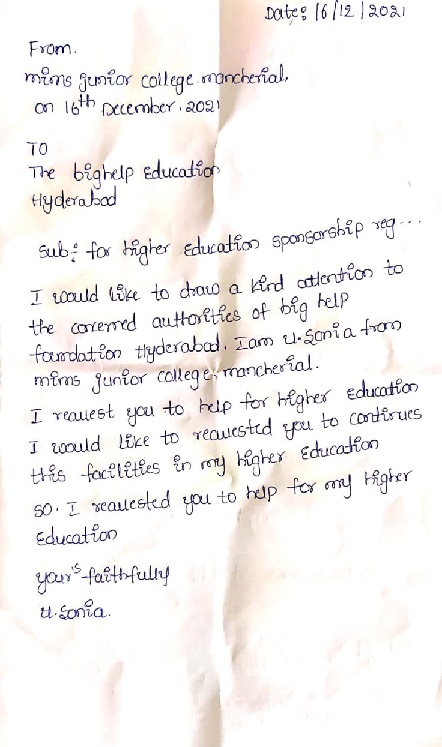 Date: 16/12/2021
From.
mims junior college. mancherial.
on 16th December. 2021
TO
The bighelp Education
Hyderabad
Sub: for higher Education sponsorship reg...
I would like to draw a kind attention to
the conerned authorities of big help
foundation Hyderabad. I am U. Sonia from
mims junior college, mancherial.
I reauest you to help for higher Education
I would like to reauested you to continues
this facilities in my higher Education
so. I reauested you to help for my higher
Education
your's faithfully
U. Sonia.